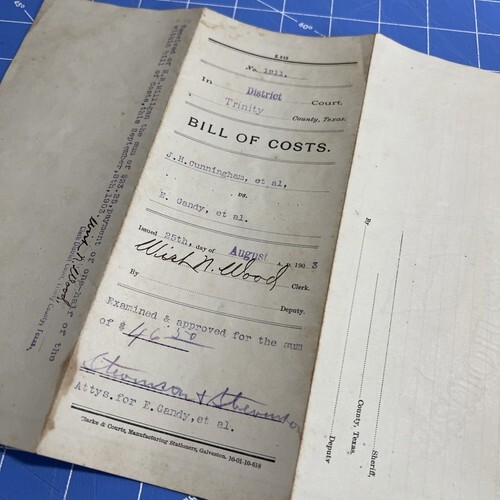 No. 1911.
In District Court.
Trinity
County, Texas.
BILL OF COSTS.
J.H.Cunningham, et al,
vs.
E. Gandy, et al.
Issued 25th, day of August A. D. 1903
Wish N. Wood
Clerk.
By
Deputy.
Examined & approved for the sum
of $ 46.50
Stevenson & Stevenson
Attys. for E. Gandy, et al.
Clarke & Courts, Manufacturing Stationers, Galveston.
the sum of
payment of
this September
Wish N. Wood
County, Texas.
By
Sheriff,
County, Texas.
Deputy